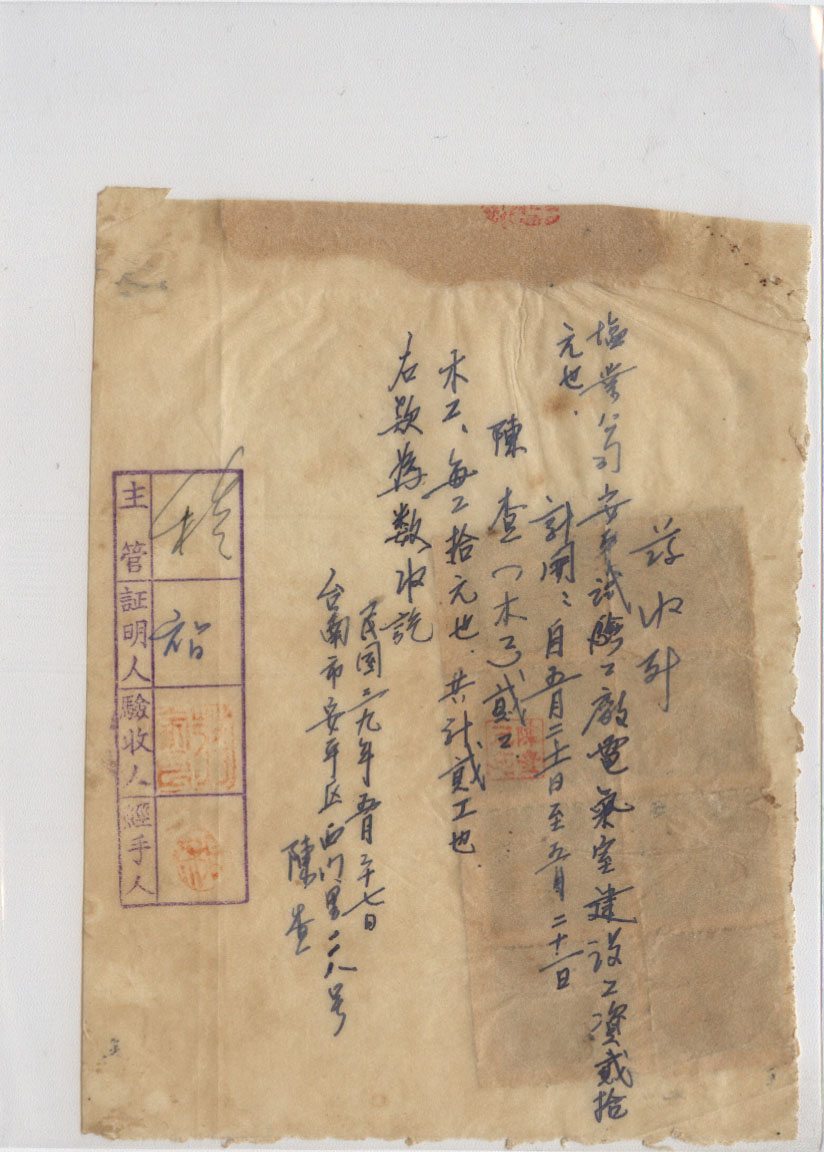 茲收到
塩業公司安平試驗工廠電氣室建設工資貳拾
元也.
計開：自五月二十日至五月二十一日
陳查（木工）貳工
木工、每工拾元也. 共計貳工也
右款為数收訖
民国三九年五月二十七日
台南市安平区西门里二八号
陳查
主管
証明人
驗收人
經手人